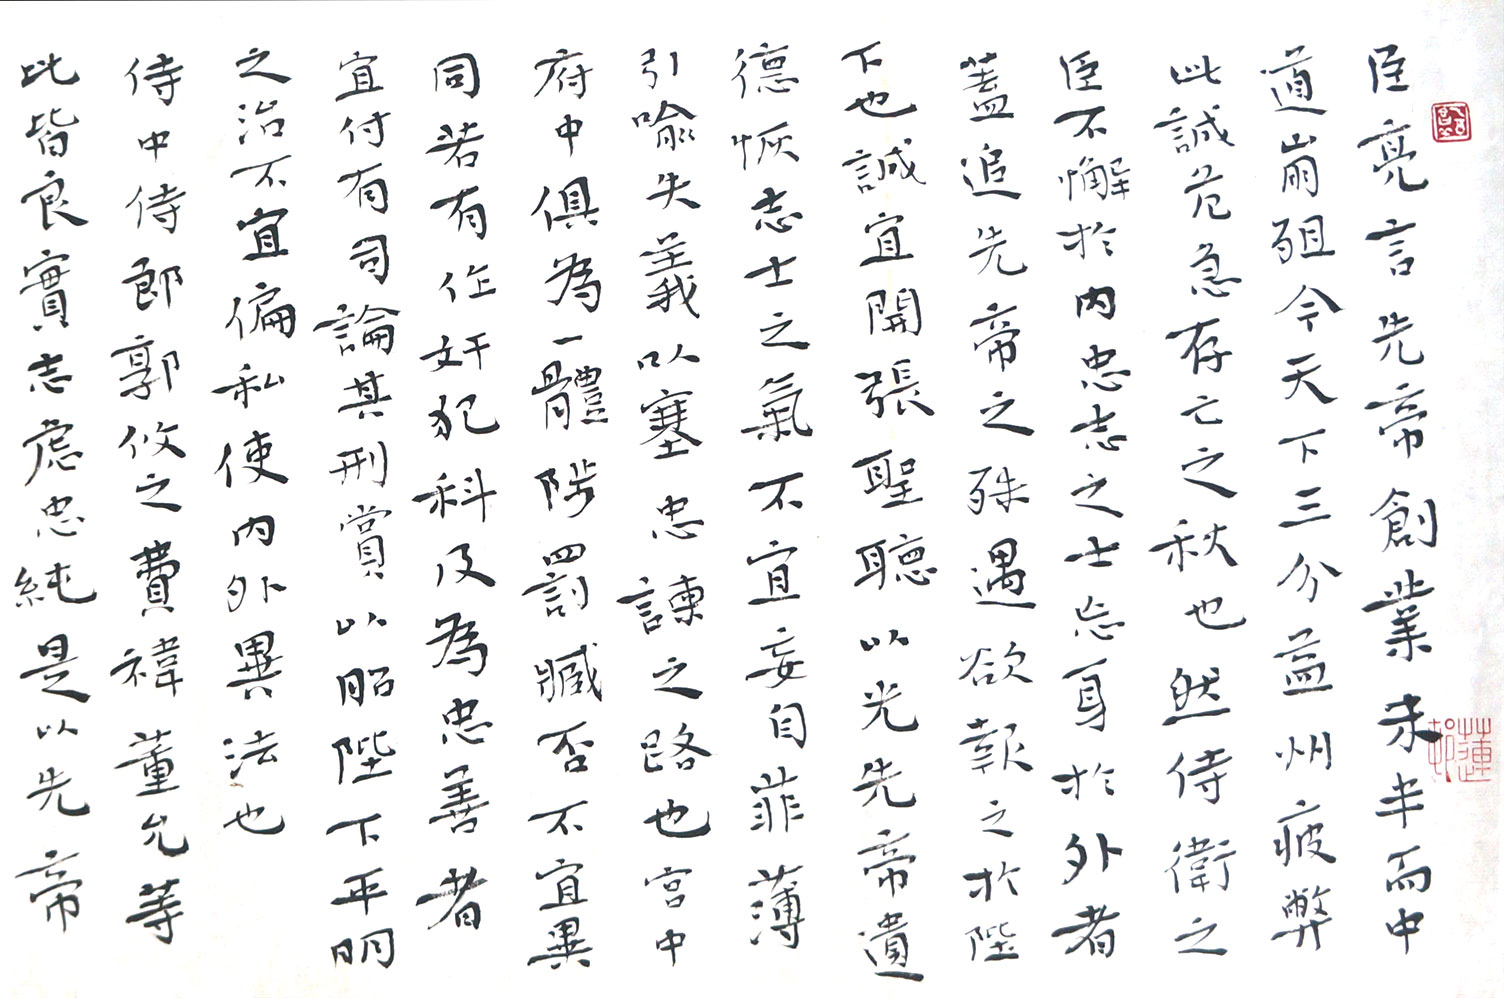 臣亮言先帝創業未半而中
道崩殂今天下三分益州疲弊
此誠危急存亡之秋也然侍衛之
臣不懈於內忠志之士忘身於外者
蓋追先帝之殊遇欲報之於陛
下也誠宜開張聖聽以光先帝遺
德恢志士之氣不宜妄自菲薄
引喻失義以塞忠諫之路也宮中
府中俱為一體陟罰臧否不宜異
同若有作奸犯科及為忠善者
宜付有司論其刑賞以昭陛下平明
之治不宜偏私使內外異法也
侍中侍郎郭攸之費禕董允等
此皆良實志慮忠純是以先帝
蓮邨